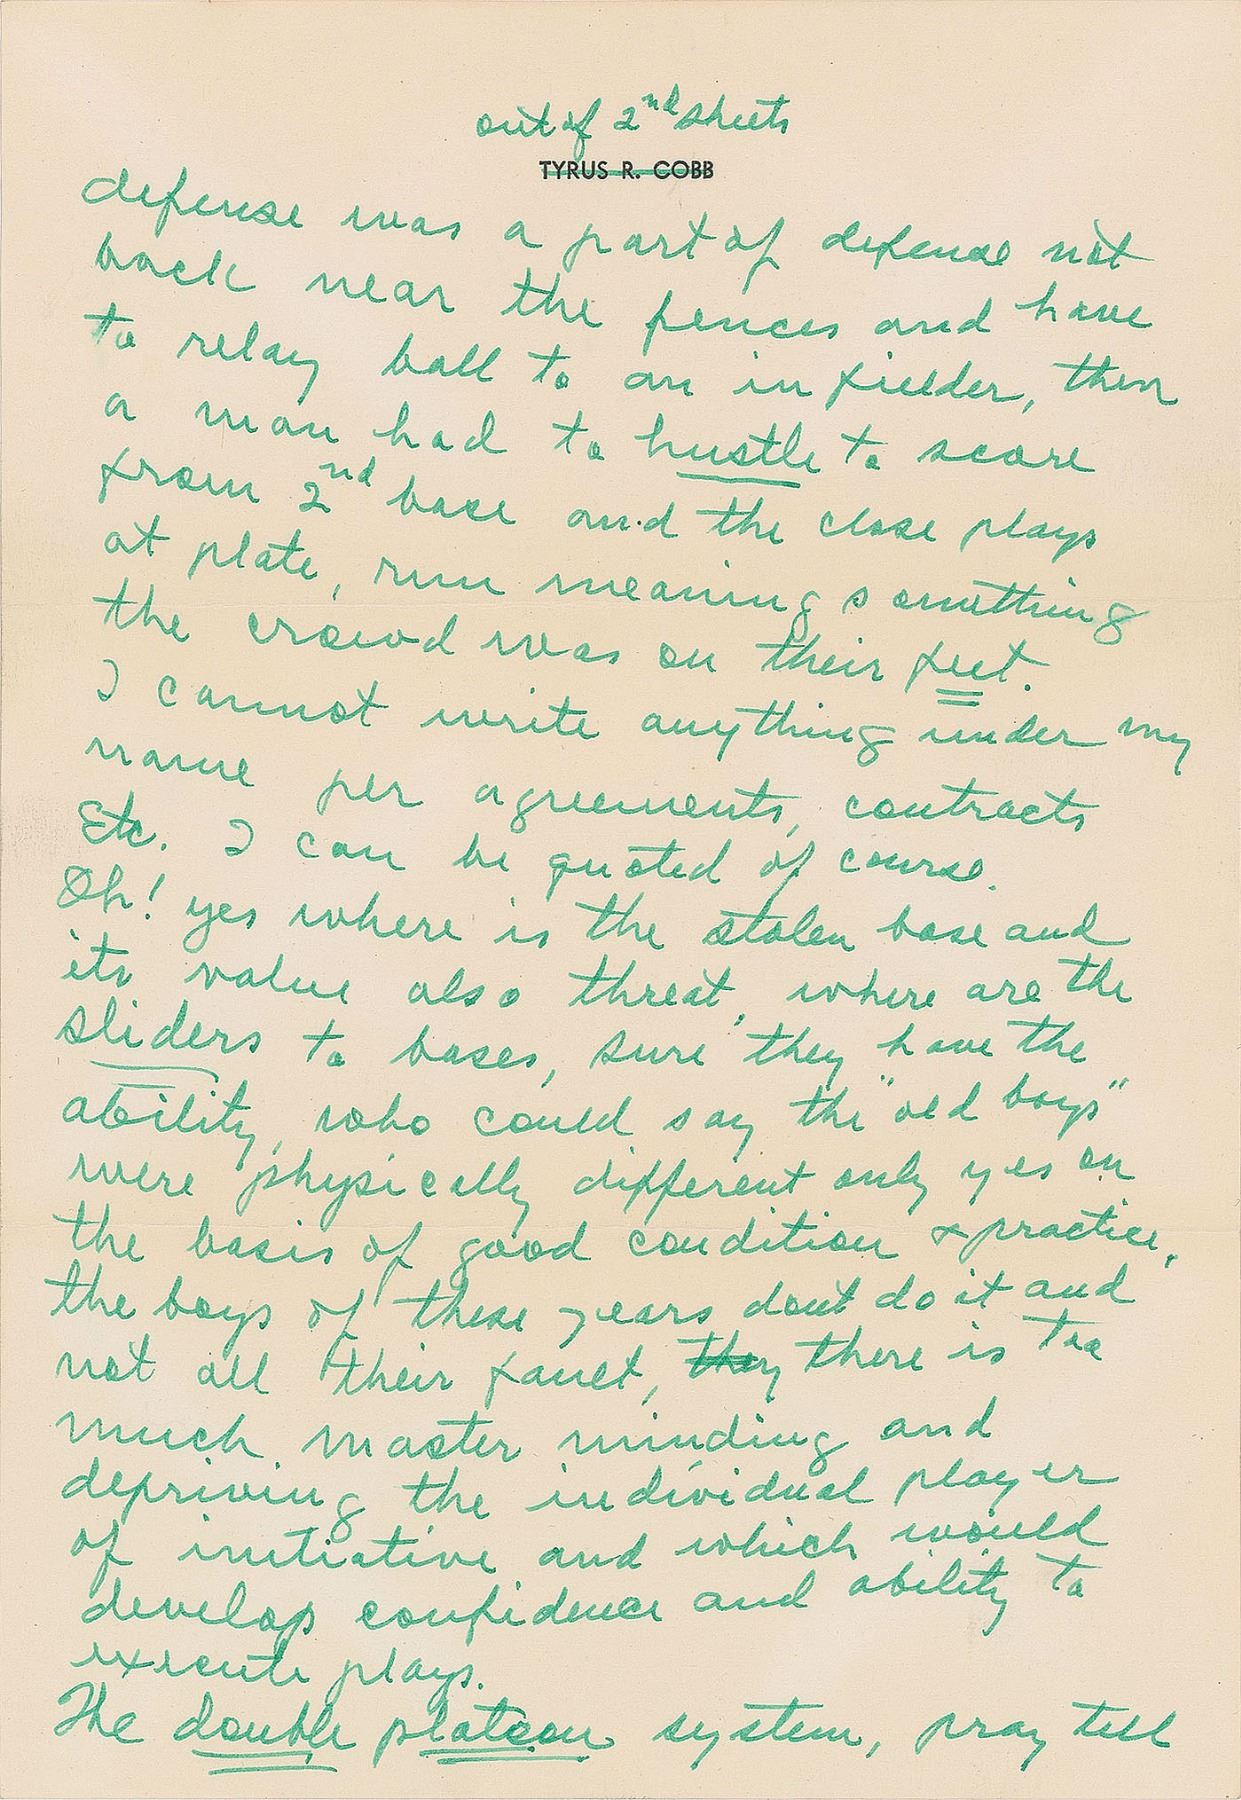 out of 2nd sheets
TYRUS R. COBB
defense was a part of defense not
back near the fences and have
to relay ball to an in fielder, then
a man had to hustle to score
from 2nd base and the close plays
at plate, run meaning something
the crowd was on their feet.
I cannot write anything under my
name per agreements, contracts
Etc. I can be quoted of course.
Oh! yes where is the stolen base and
its value also threat, where are the
sliders to bases, sure they have the
ability, who could say the "old boys"
were physically different only yes on
the basis of good condition & practice,
the boys of these years dont do it and
not all their fault, they there is too
much master minding and
depriving the individual player
of initiative and which would
develop confidence and ability to
execute plays.
The double platoon system, pray tell